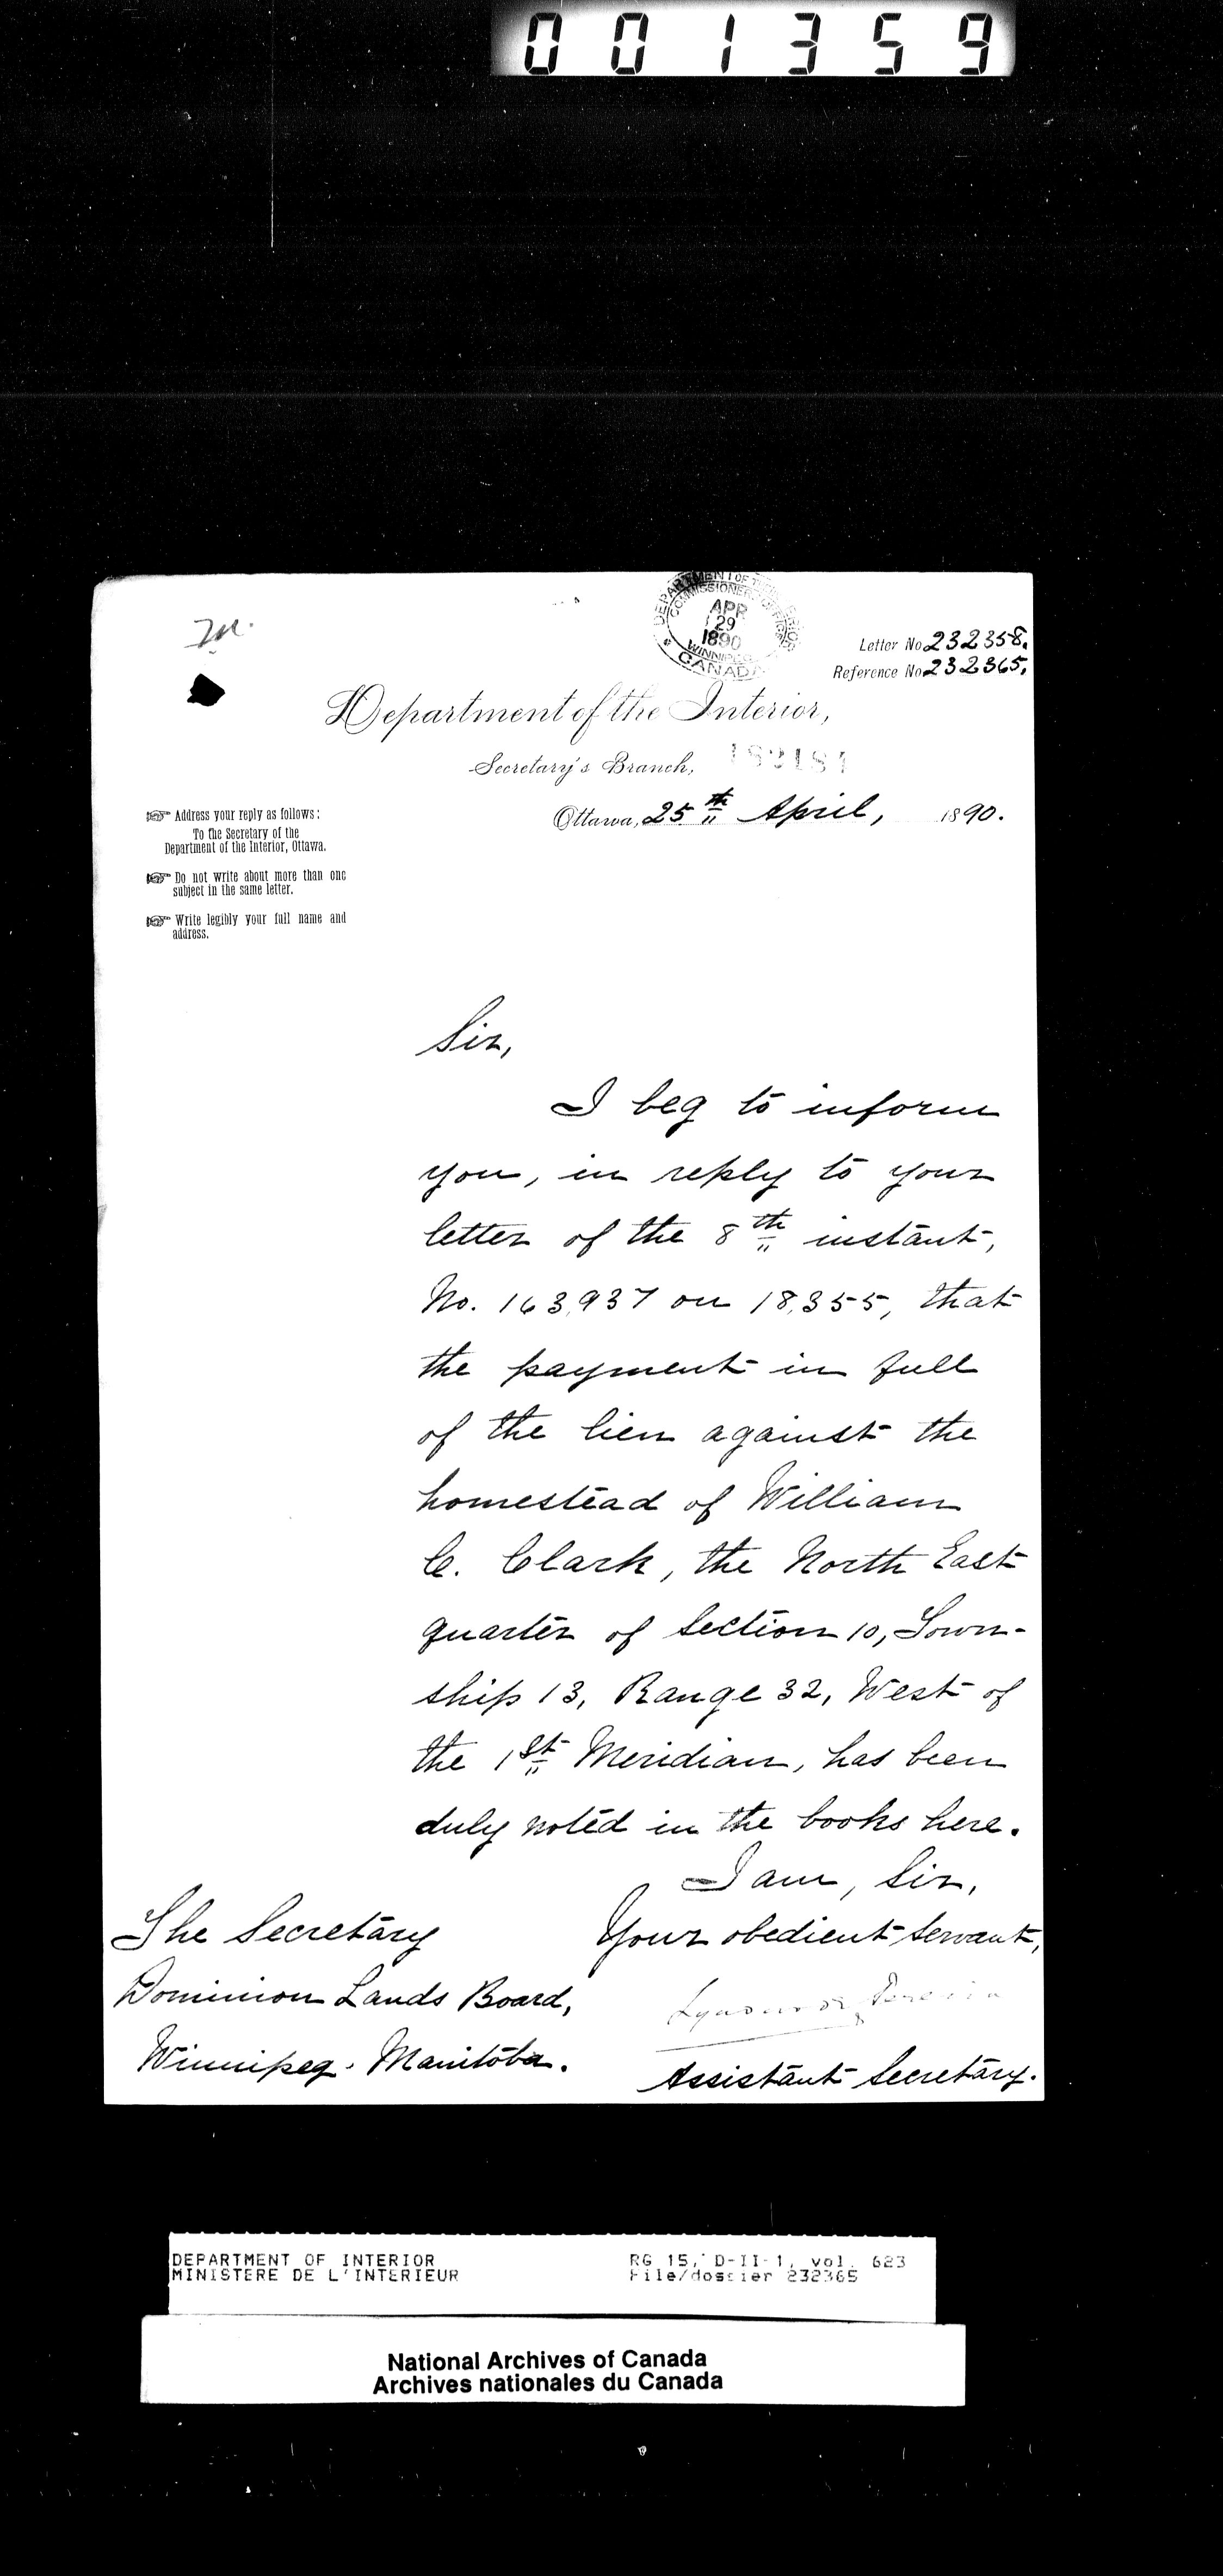 001359
DEPARTMENT OF THE INTERIOR
COMMISSIONER'S OFFICE
APR
29
1890
WINNIPEG
CANADA
Letter No 232358.
Reference No 232365.
Department of the Interior,
Secretary's Branch,
182484
Ottawa, 25th April, 1890.
Address your reply as follows:
To the Secretary of the
Department of the Interior, Ottawa.
Do not write about more than one
subject in the same letter.
Write legibly your full name and
address.
Sir,
I beg to inform
you, in reply to your
letter of the 8th instant,
No. 163,937 on 18,355, that
the payment in full
of the lien against the
homestead of William
C. Clark, the North East
quarter of Section 10, Town-
ship 13, Range 32, West of
the 1st Meridian, has been
duly noted in the books here.
I am, Sir,
Your obedient servant,
The Secretary
Dominion Lands Board,
Winnipeg. Manitoba.
Assistant Secretary.
DEPARTMENT OF INTERIOR
MINISTERE DE L'INTERIEUR
RG 15, D-II-1, vol. 623
File/dossier 232365
National Archives of Canada
Archives nationales du Canada